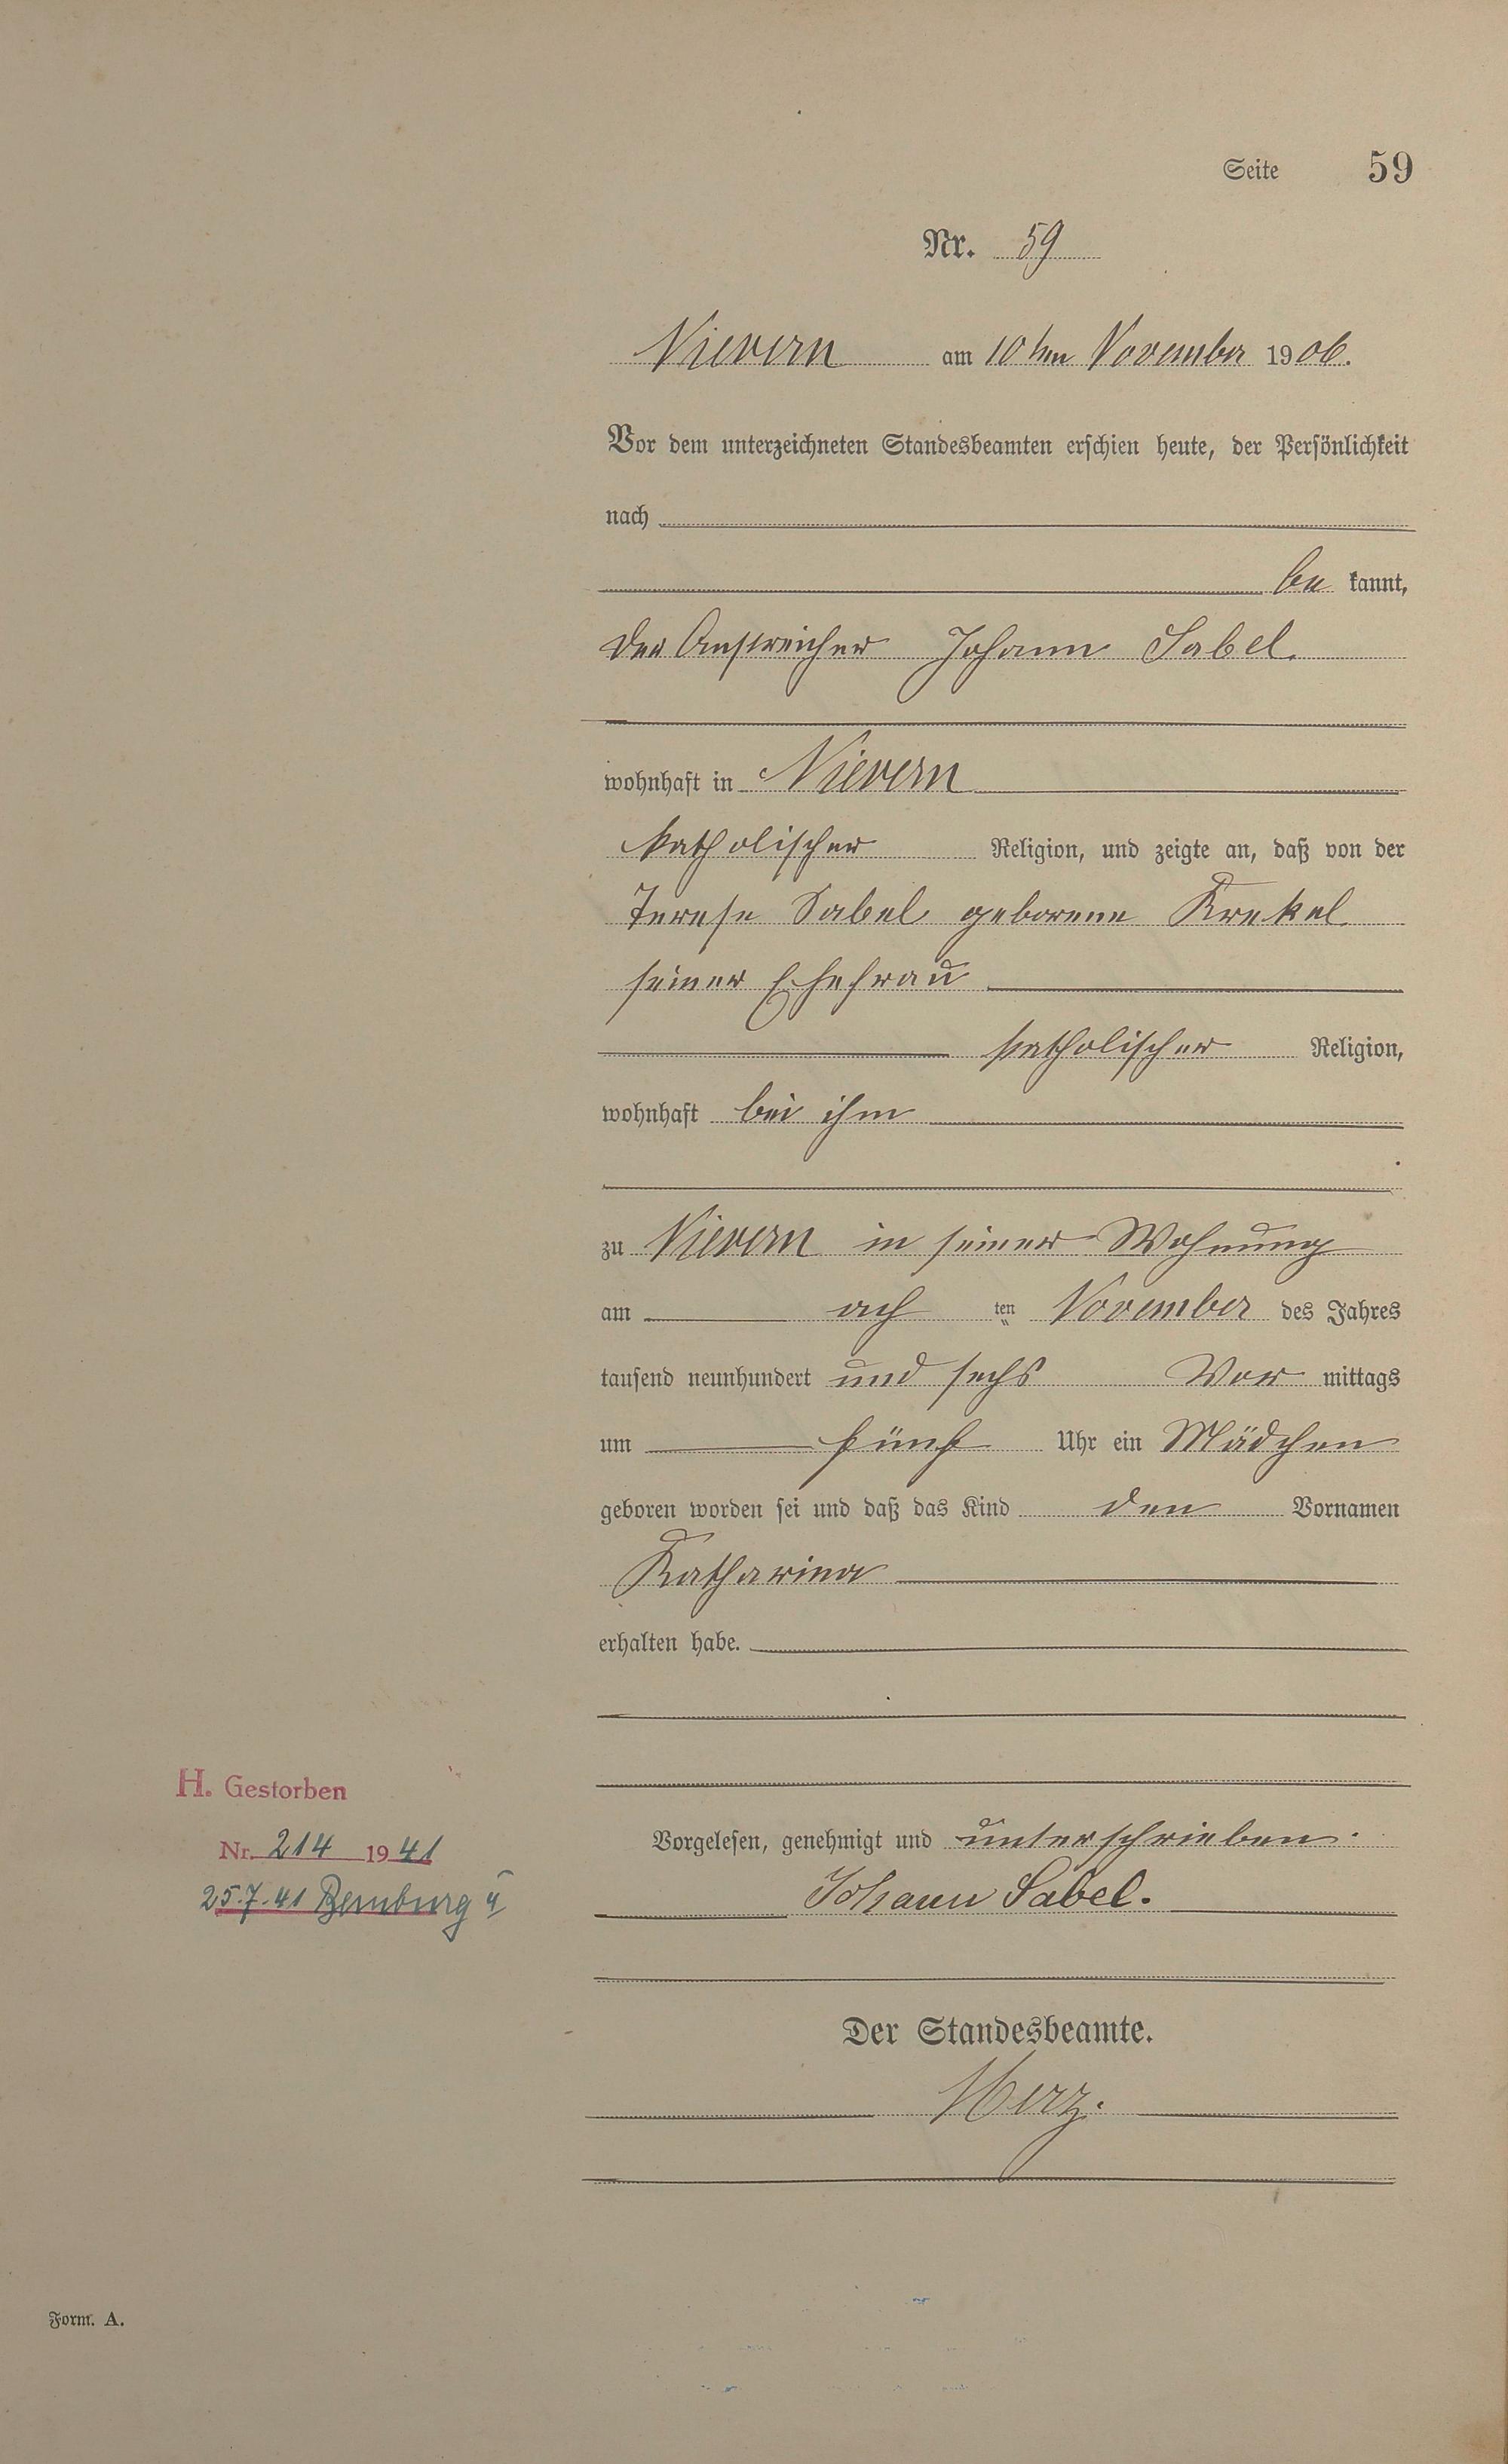 Seite 59
Nr. 59
Nievern am 10ten November 1906.
Vor dem unterzeichneten Standesbeamten erschien heute, der Persönlichkeit
nach
be kannt,
der Anstreicher Johann Sabel
wohnhaft in Nievern
katholischer Religion, und zeigte an, daß von der
Terese Sabel geborene Krekel
seiner Ehefrau
katholischer Religion,
wohnhaft bei ihm
zu Nievern in seiner Wohnung
am ach ten November des Jahres
tausend neunhundert und sechs Vor mittags
um fünf Uhr ein Mädchen
geboren worden sei und daß das Kind den Vornamen
Katharina
erhalten habe.
H. Gestorben
Nr. 214 1941
25.7.41 Bernburg II
Vorgelesen, genehmigt und unterschrieben.
Johann Sabel.
Der Standesbeamte.
Merz.
Form. A.